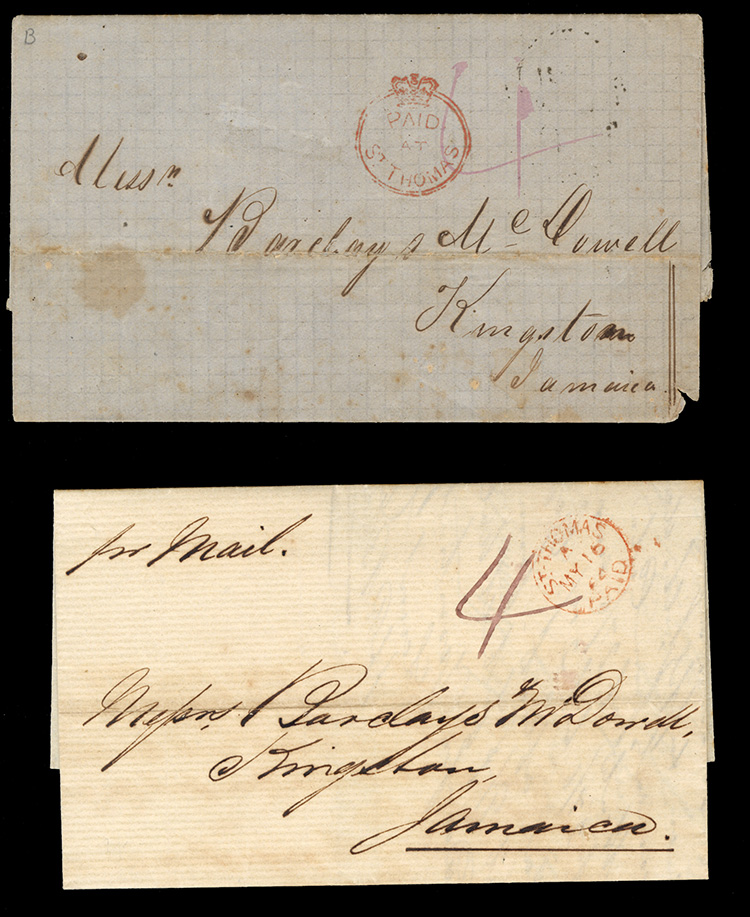 B
PAID
AT
ST. THOMAS
4
Messrs
Barclay & McDowell
Kingston
Jamaica
pr Mail.
4
ST. THOMAS
A
MY 16
64
PAID
Messrs. Barclay & McDowell,
Kingston
Jamaica.